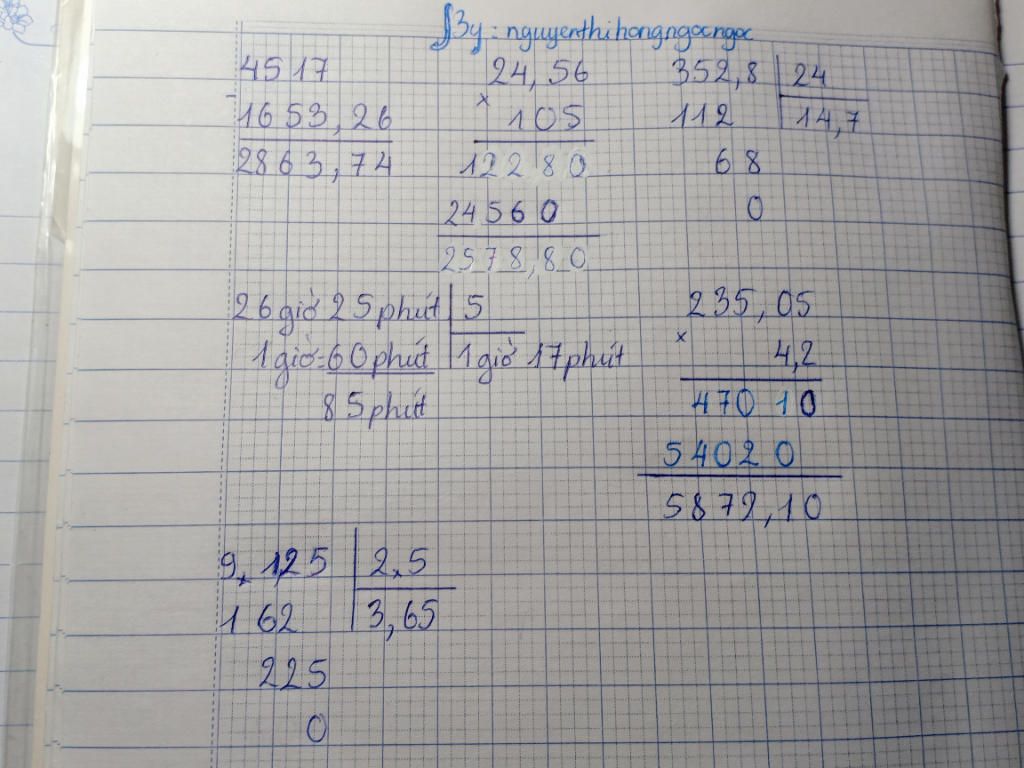 By : nguyenthihongngocngoc
4517
-
1653,26
2863,74
24,56
x
105
12280
24560
2578,80
352,8 | 24
112 | 14,7
68
0
26 giờ 25 phút | 5
1 giờ = 60 phút | 1 giờ 17 phút
85 phút
235,05
x
4,2
47010
54020
5872,10
9,125 | 2,5
162 | 3,65
225
0